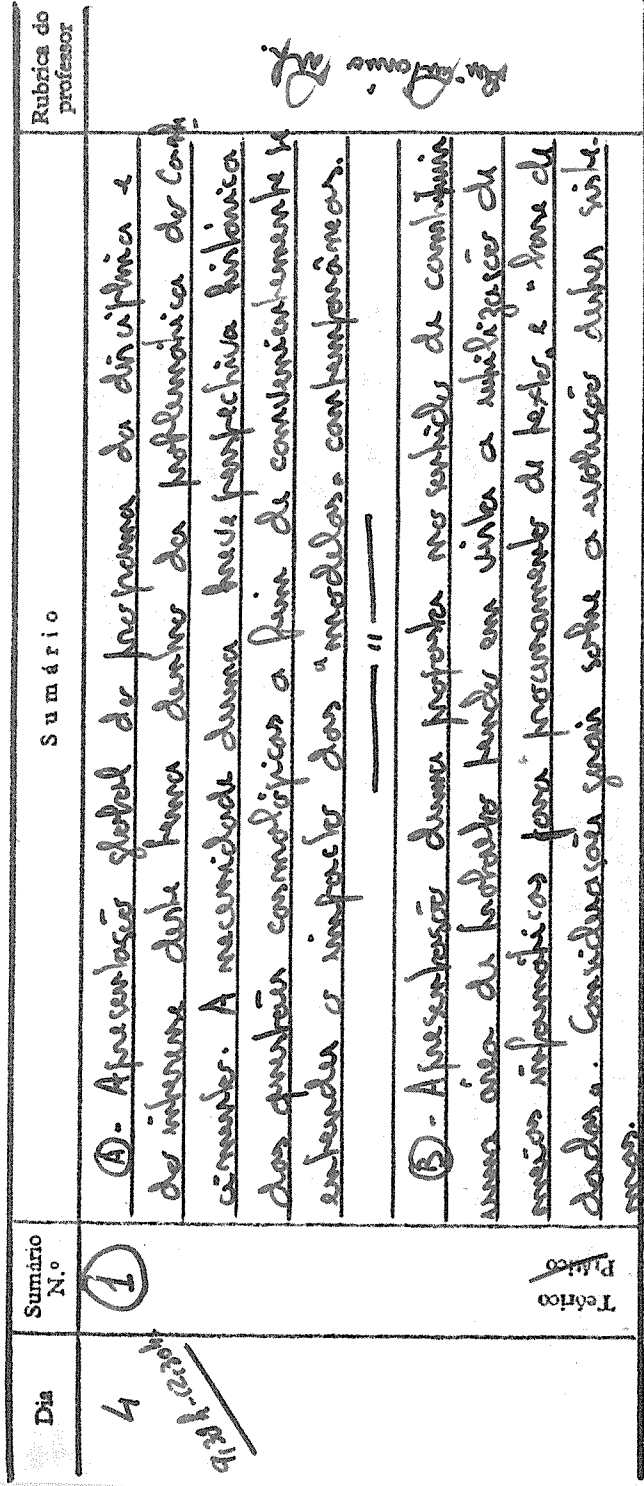 Dia
Sumário N.º
Sumário
Rubrica do professor
4
9,30h-12,30h
1
Teórico
Prático
A - Apresentação global do programa da disciplina e
do interesse deste tema dentro da problemática do Conhe-
cimento. A necessidade duma breve perspectiva histórica
das questões cosmológicas a fim de convenientemente se
entender o impacto dos "modelos" contemporâneos.
— " —
B - Apresentação duma proposta no sentido de constituir
uma área de trabalho tendo em vista a utilização de
meios informáticos para "processamento de texto" e "base de
dados". Considerações gerais sobre a evolução destes siste-
mas.